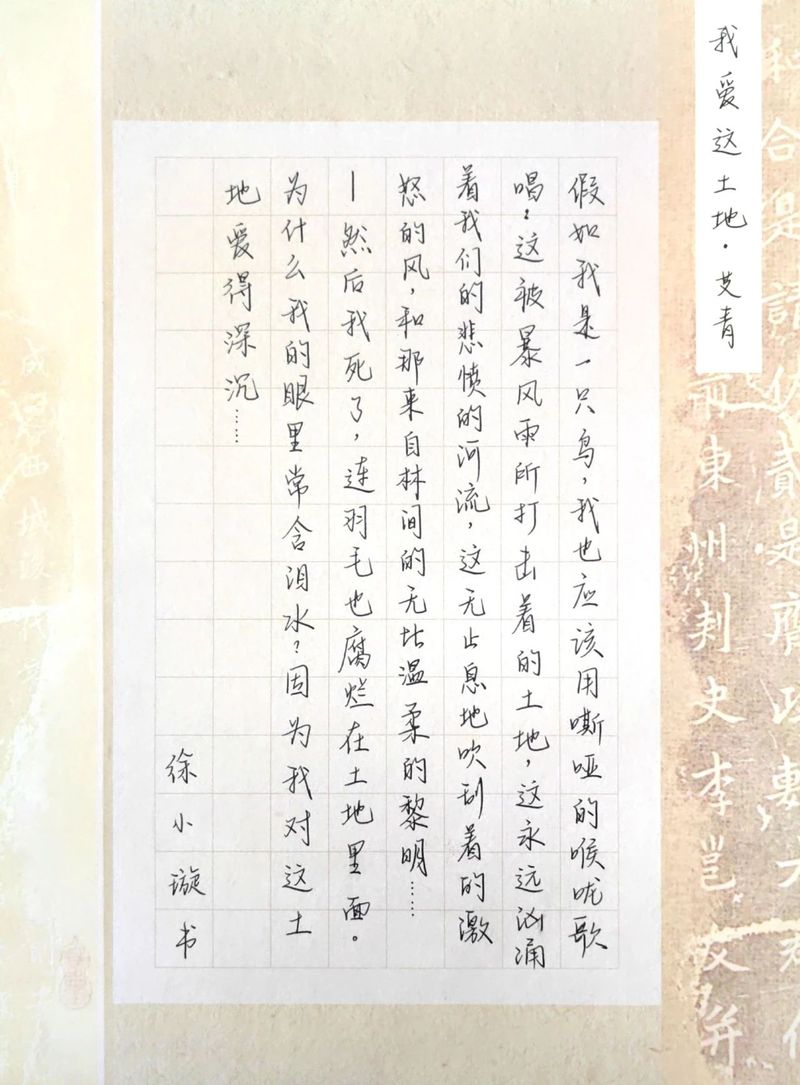 我爱这土地·艾青
假如我是一只鸟，我也应该用嘶哑的喉咙歌
唱：这被暴风雨所打击着的土地，这永远汹涌
着我们的悲愤的河流，这无止息地吹刮着的激
怒的风，和那来自林间的无比温柔的黎明……
—然后我死了，连羽毛也腐烂在土地里面。
为什么我的眼里常含泪水？因为我对这土
地爱得深沉……
徐小璇书
東州刺史李邕文并